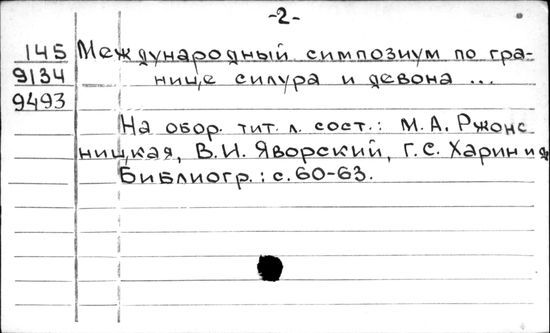 -2-
145 Международный симпозиум по гра-
9134 нице силура и девона ...
9493
На обор. тит. л. сост.: М.А. Ржонс
ницкая, В.И. Яворский, Г.С. Харин и др
Библиогр.: с. 60-63.